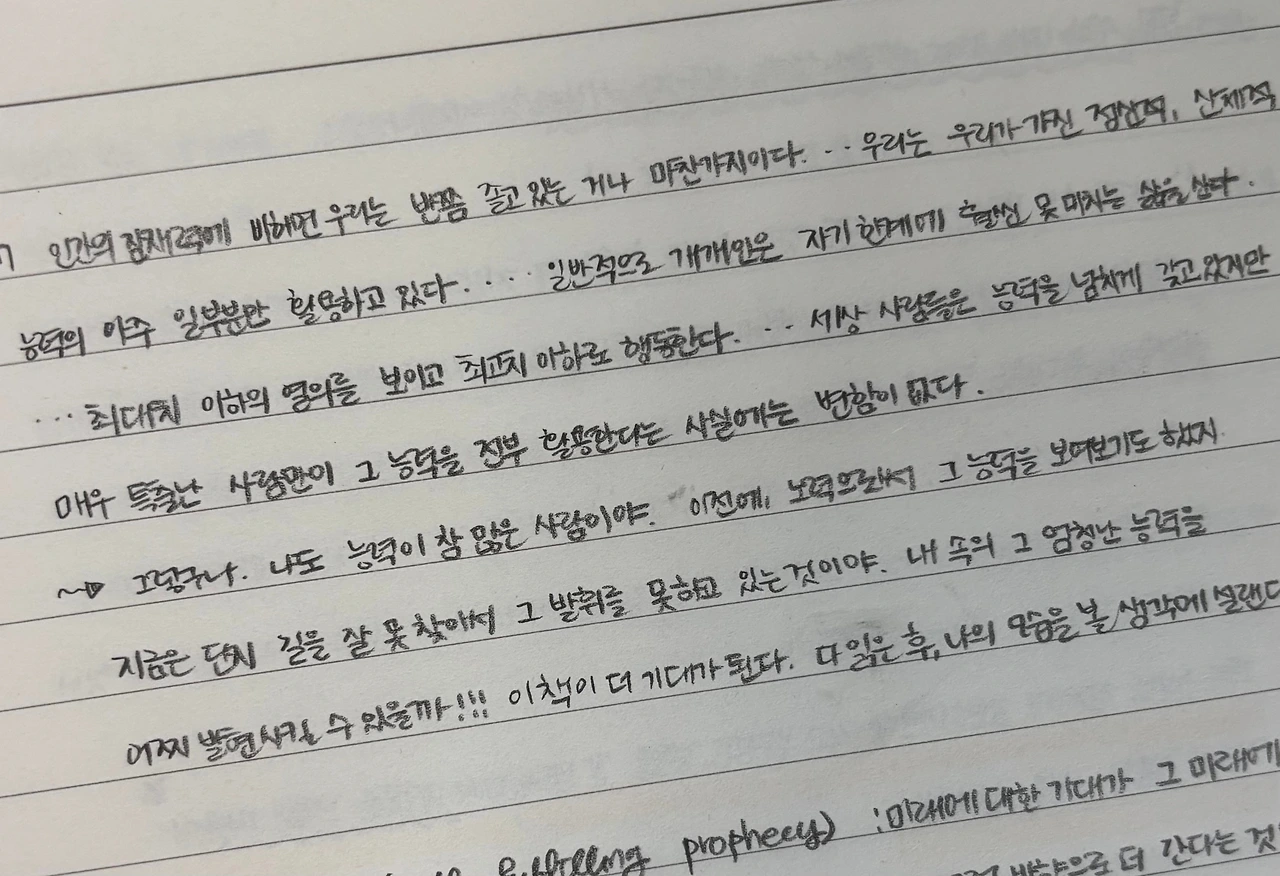 인간의 잠재력에 비하면 우리는 반쯤 졸고 있는 거나 마찬가지이다. ‥ 우리는 우리가 가진 정신적, 신체적
능력의 아주 일부분만 활용하고 있다. ‥‥ 일반적으로 개개인은 자기 한계에 훨씬 못 미치는 삶을 산다.
… 최대치 이하의 열의를 보이고 최고치 이하로 행동한다. ‥ 세상 사람들은 능력을 넘치게 갖고 있지만
매우 특출난 사람만이 그 능력을 전부 활용한다는 사실에는 변함이 없다.
~> 그렇구나. 나도 능력이 참 많은 사람이야. 이전에, 노력으로서 그 능력을 보여보기도 했지
지금은 단지 길을 잘 못 찾아서 그 발휘를 못하고 있는 것이야. 내 속의 그 엄청난 능력을
어찌 발현시킬 수 있을까!!! 이 책이 더 기대가 된다. 다 읽은 후, 나의 모습을 볼 생각에 설랜다
prophecy) : 미래에 대한 기대가 그 미래에
방향으로 더 간다는 것